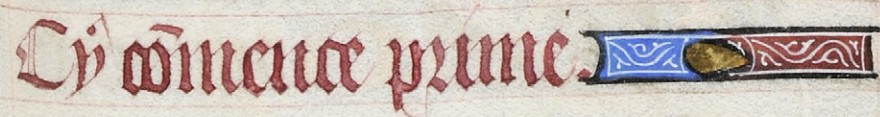 Cy cõmence prime.